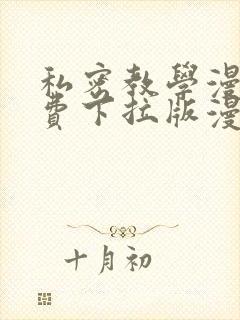 私密教學漫
費下拉版漫
十月初